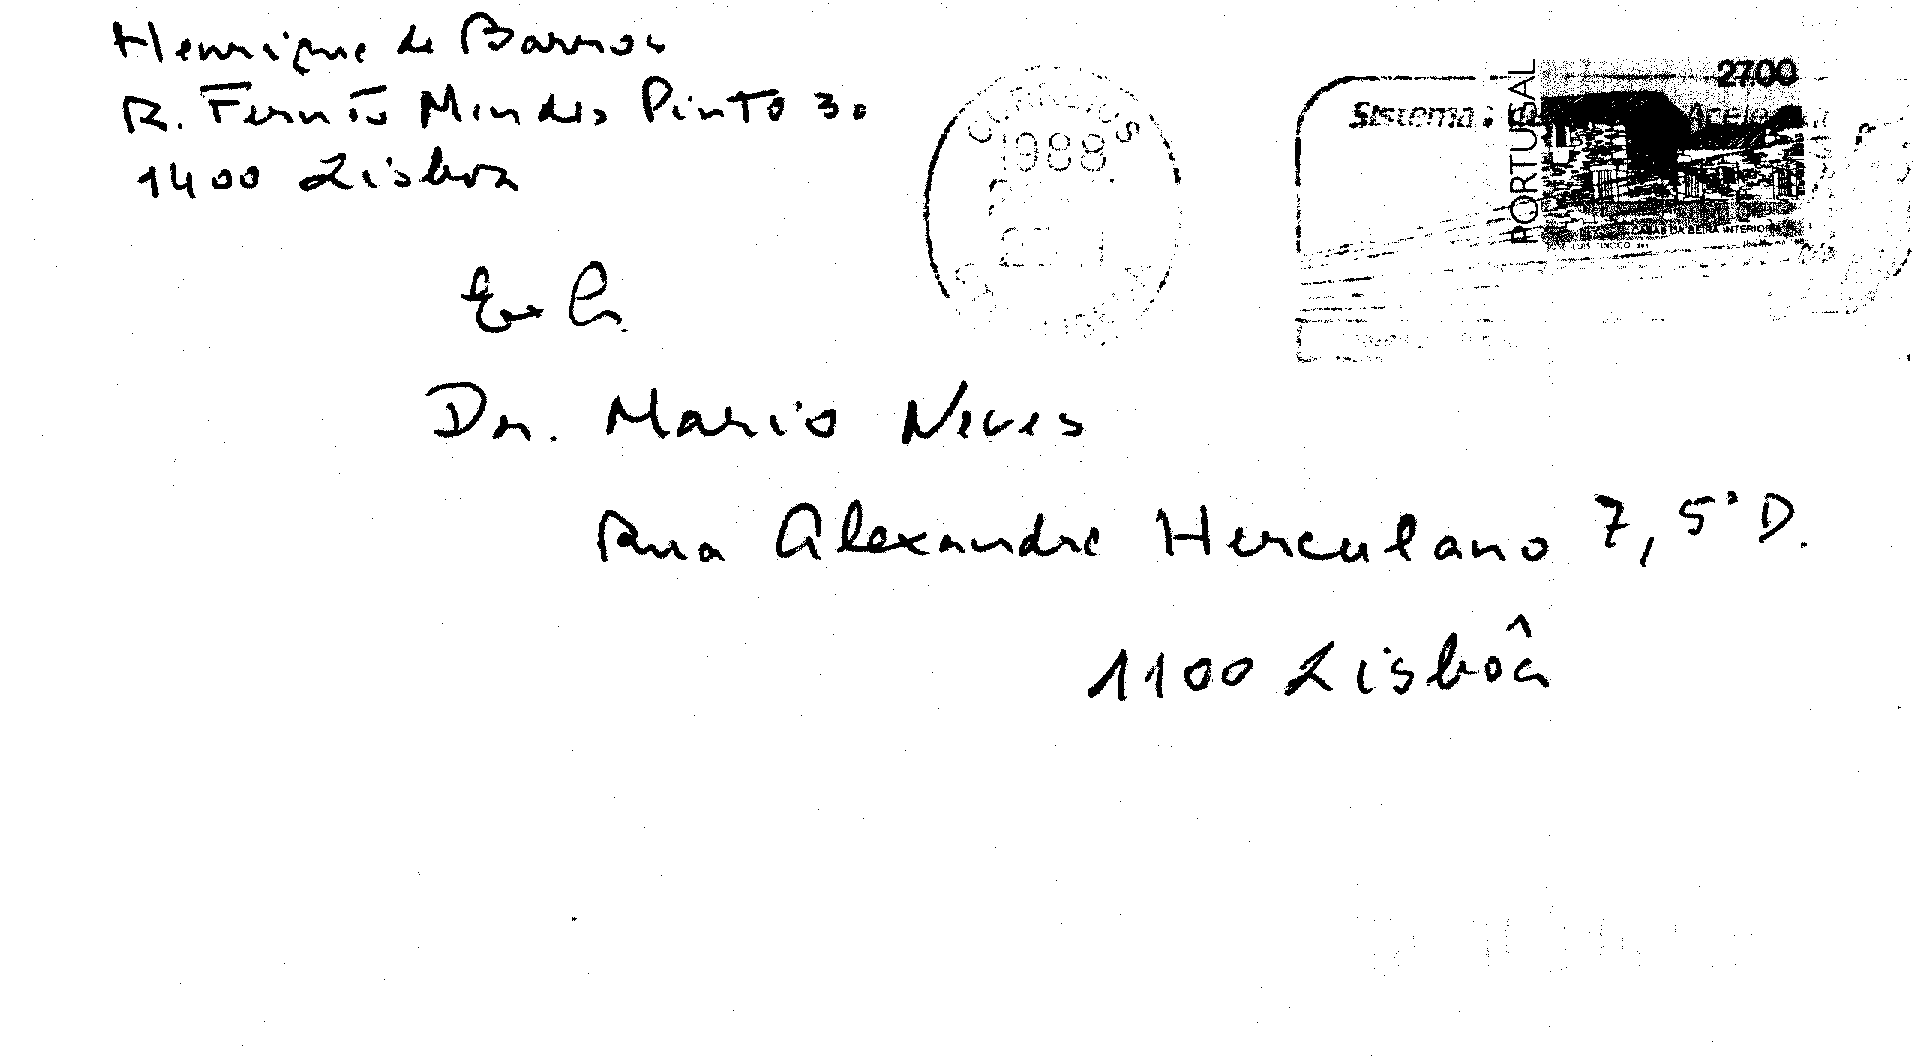 Henrique de Barros
R. Fernão Mendes Pinto 30
1400 Lisboa
CORREIOS
1988
Sistema
PORTUGAL
2700
CASAS DA BEIRA INTERIOR
Dr. Mario Neves
Rua Alexandre Herculano 7, 5º D.
1100 Lisbôa